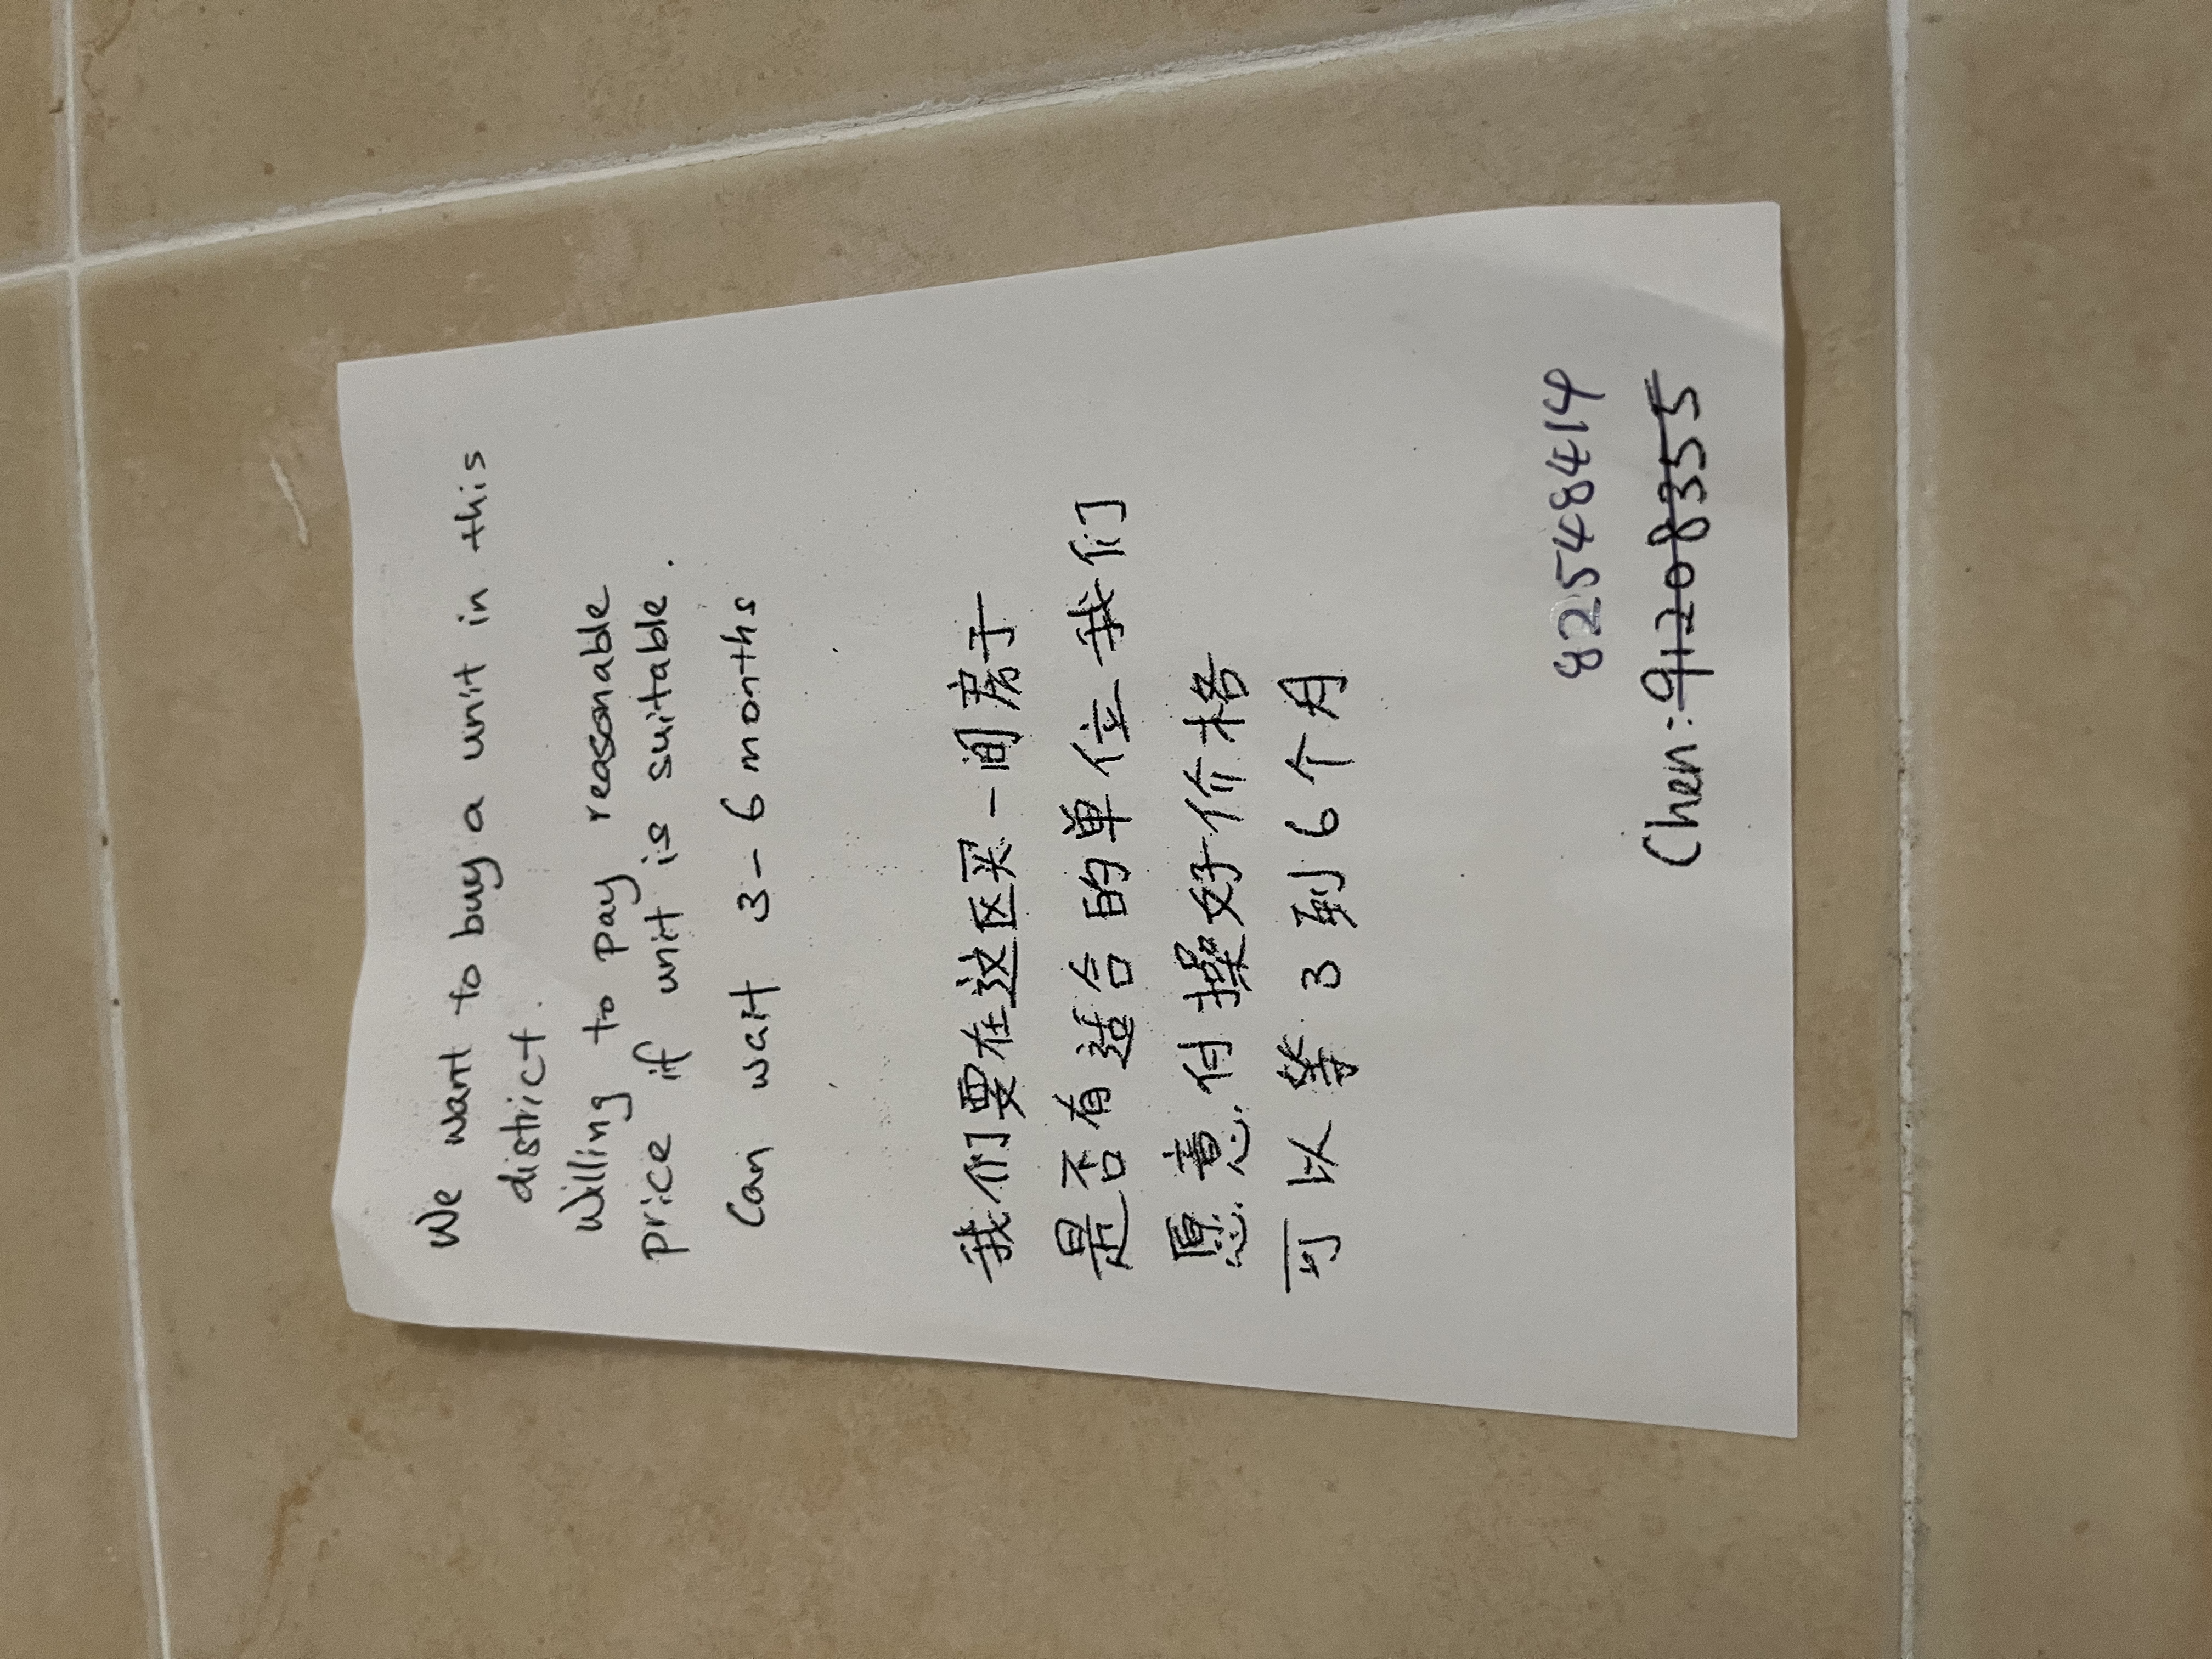 We want to buy a unit in this
district.
Willing to pay reasonable
price if unit is suitable.
Can wait 3-6 months
我们要在这区买一间房子
是否有适合的单位我们
愿意付 好价格
可以等3到6个月
82548414
Chen: 91208355